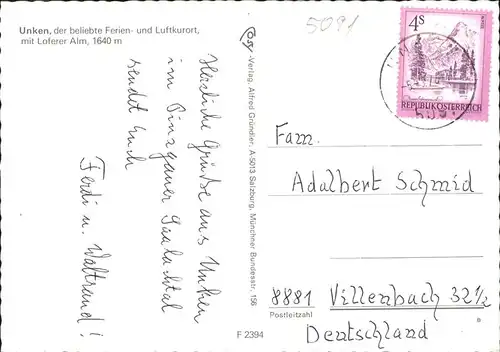 Unken, der beliebte Ferien- und Luftkurort,
mit Loferer Alm, 1640 m
5091
Herzliche Grüße aus Unken
im Pinzgauer Saalachtal
sendet Euch
Ferdi u. Waltraud!
Cosy-Verlag: Alfred Gründler, A-5013 Salzburg, Münchner Bundesstr. 156
4S
REPUBLIK ÖSTERREICH
Fam.
Adalbert Schmid
8881 Villenbach 32 1/2
Postleitzahl
Deutschland
F 2394